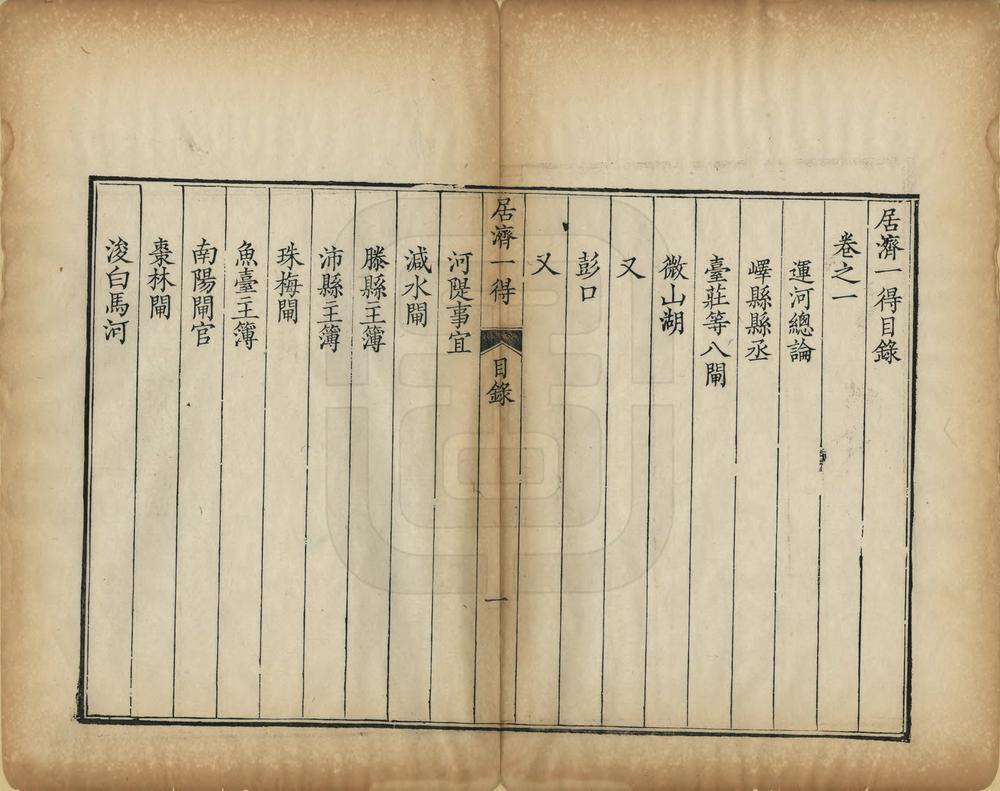 居濟一得目錄
卷之一
運河總論
嶧縣縣丞
臺莊等八閘
微山湖
又
彭口
又
居濟一得 目錄 一
河隄事宜
減水閘
滕縣主簿
沛縣主簿
珠梅閘
魚臺主簿
南陽閘官
棗林閘
浚白馬河